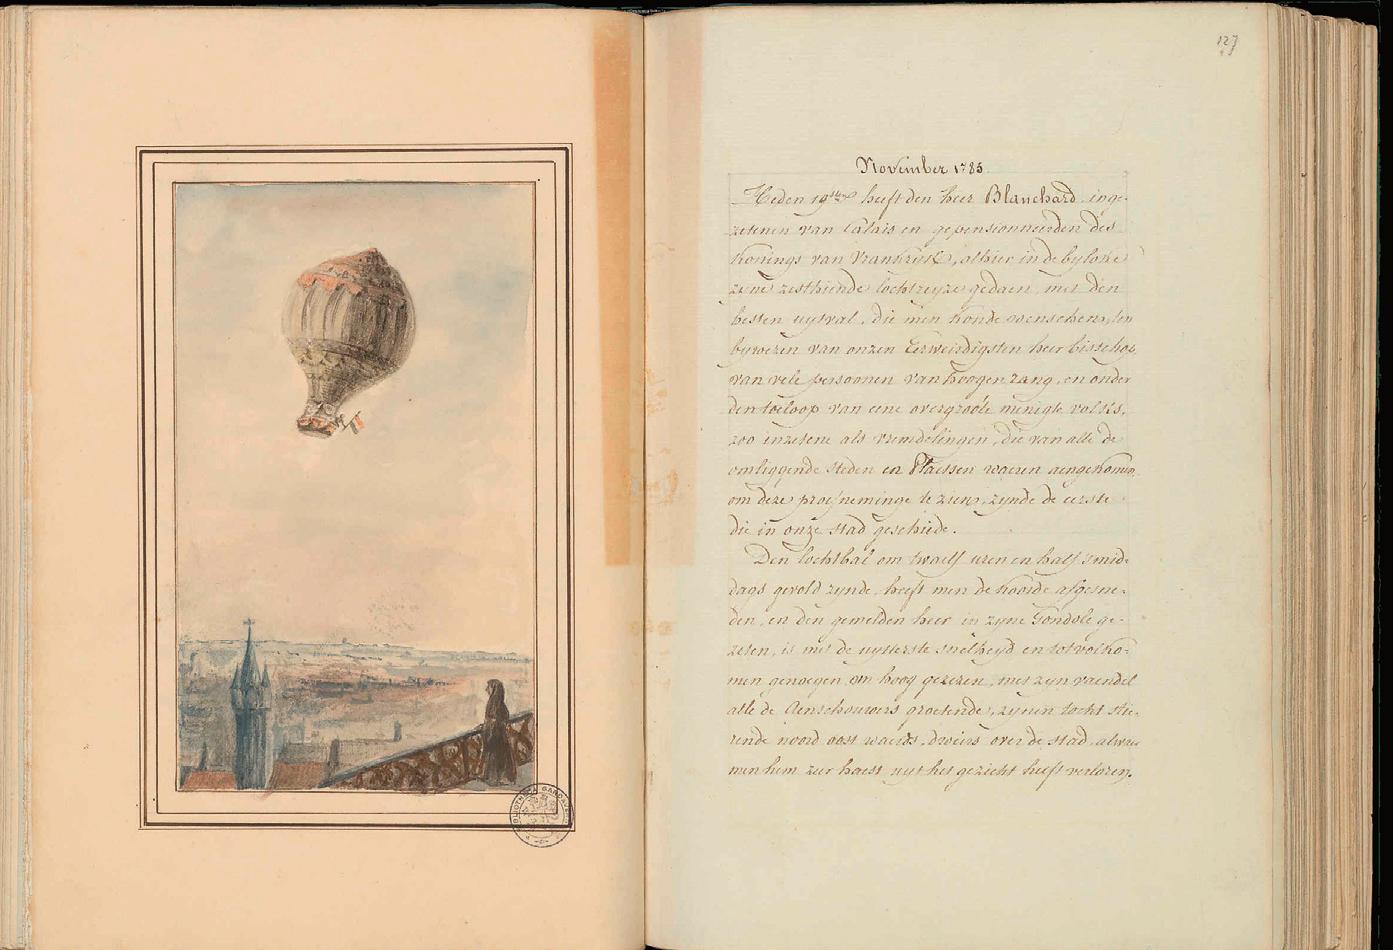 127
November 1785.
Heden 19sten heeft den heer Blanchard inge-
zetenen van Calais en gepensionneerden des
Konings van Vrankryk, alhier in de byloke
zyne zesthiende lochtreyze gedaen, met den
besten uytval, die men konde wenschen, ten
bywezen van onzen Eerweirdigsten heer bisschop
van vele persoonen van hoogen rang, en onder
den toeloop van eene overgroote menigte volks,
zoo inzetene als vremdelingen, die van alle de
omliggende steden en Plaetsen waeren aengekomen,
om deze proefneminge te zien, zynde de eerste
die in onze stad geschiede.
Den lochtbal om twaelf uren en half smid-
dags gevold zynde, heeft men de koorde afgesne-
den, en den gemelden heer in zyne Gondole ge-
zeten, is met de uytterste snelheyd en tot volko-
men genoegen, om hoog gerezen, met zyn vaendel
alle de Aenschouwers groetende, zynen tocht stie-
rende noord oost waerds, dweirs over de stad, alwaer
men hem zeer haest uyt het gezicht heeft verlozen.
BIBLIOTHECA GANDAVENSIS